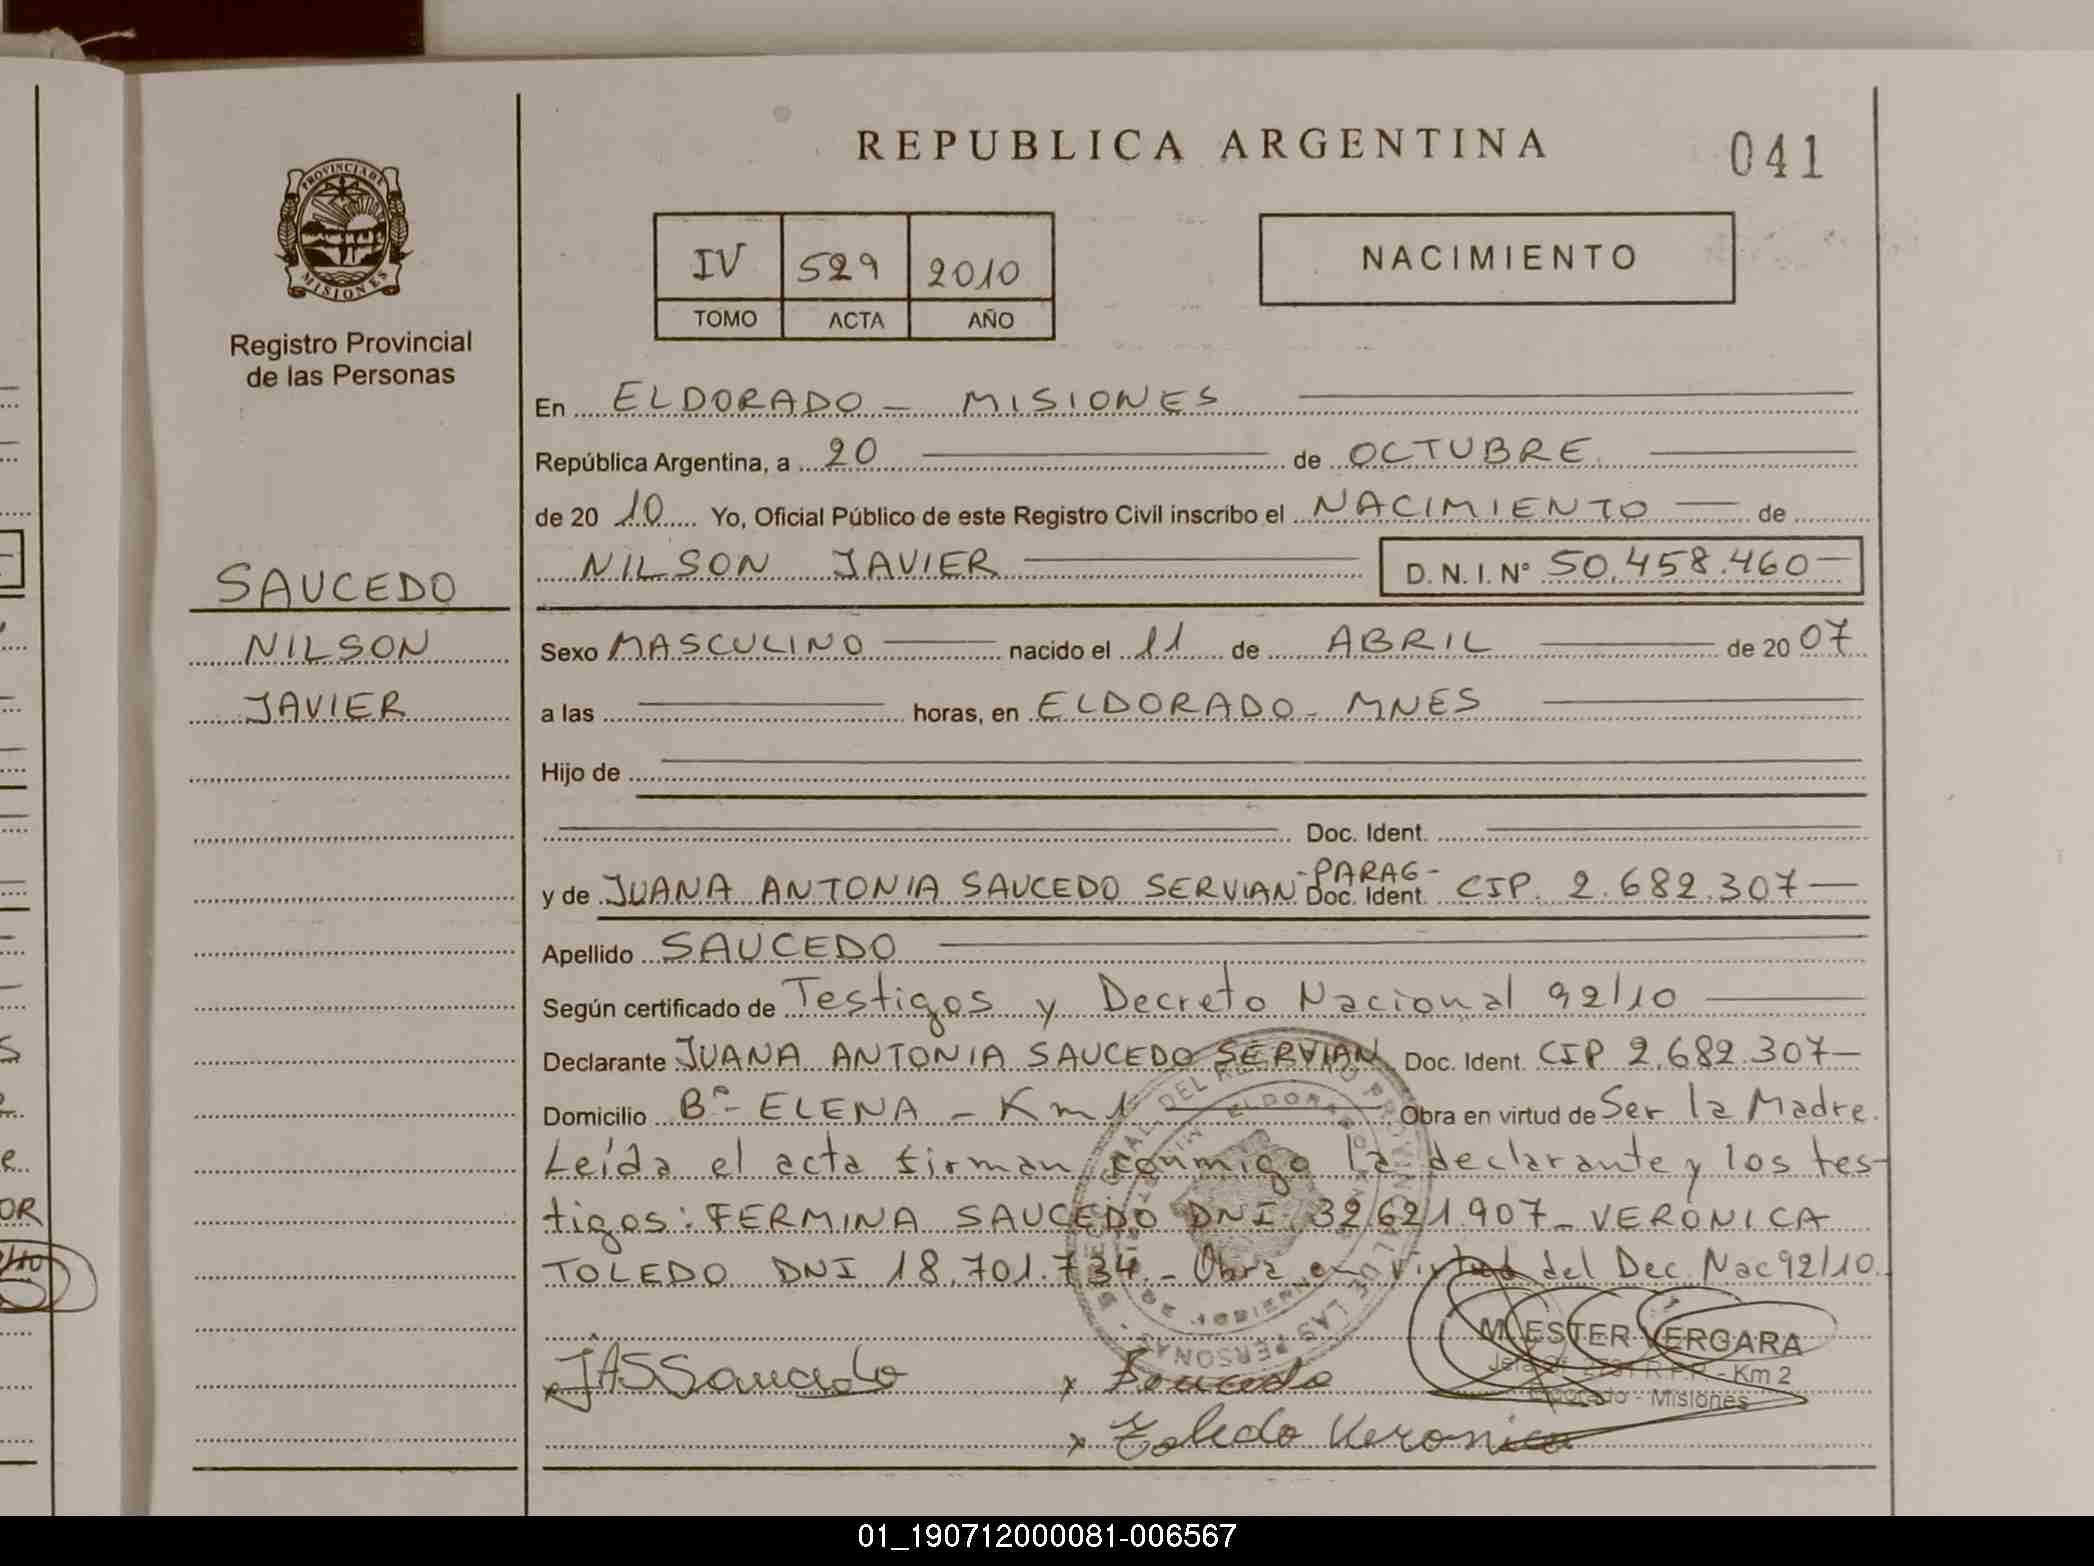 REPUBLICA ARGENTINA
041
PROVINCIA DE
MISIONES
Registro Provincial
de las Personas
IV 529 2010
TOMO ACTA AÑO
NACIMIENTO
En ELDORADO - MISIONES
República Argentina, a 20 de OCTUBRE
de 20 10 Yo, Oficial Público de este Registro Civil inscribo el NACIMIENTO de
NILSON JAVIER D. N. I. N° 50.458.460
SAUCEDO
NILSON
JAVIER
Sexo MASCULINO nacido el 11 de ABRIL de 20 07
a las horas, en ELDORADO - MNES
Hijo de
Doc. Ident.
y de JUANA ANTONIA SAUCEDO SERVIAN -PARAG- Doc. Ident. CIP. 2.682.307
Apellido SAUCEDO
Según certificado de Testigos y Decreto Nacional 92/10
Declarante JUANA ANTONIA SAUCEDO SERVIAN Doc. Ident. CIP 2.682.307
Domicilio B° - ELENA - Km 1 Obra en virtud de Ser la Madre.
Leída el acta firman conmigo la declarante y los tes-
tigos: FERMINA SAUCEDO DNI 32.621.907 - VERONICA
TOLEDO DNI 18.701.734. - Obra en virtud del Dec. Nac 92/10.
JASSaucedo
x Saucedo
x Toledo Veronica
M. ESTER VERGARA
R.P.P. - Km 2
Eldorado - Misiones
01_190712000081-006567